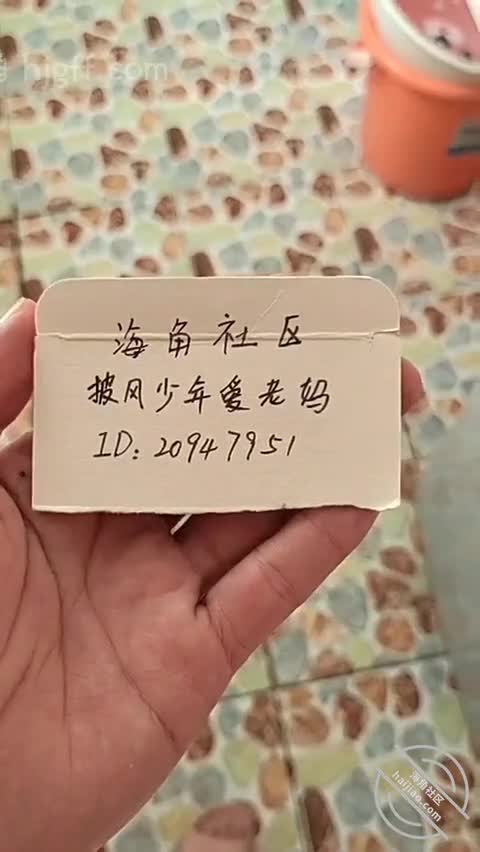 海角社区
披风少年爱老妈
ID: 20947951
海角社区
haijiao.com